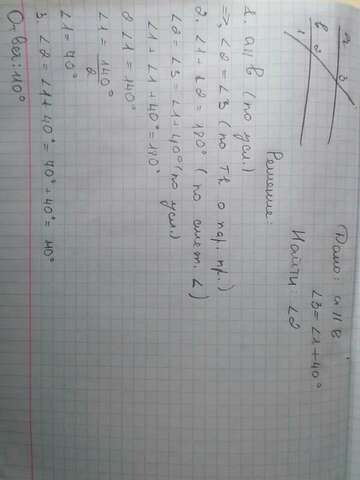 Дано: a || b
∠3 = ∠1 + 40°
Найти: ∠2
a
b
1
2
3
Решение:
1. a || b (по усл.)
=> ∠2 = ∠3 (по Тh о пар. пр.)
2. ∠1 + ∠2 = 180° (по смеж. ∠)
∠2 = ∠3 = ∠1 + 40° (по усл.)
∠1 + ∠1 + 40° = 180°
2∠1 = 140°
∠1 = 140°/2
∠1 = 70°
3 ∠2 = ∠1 + 40° = 70° + 40° = 110°
Ответ: 110°